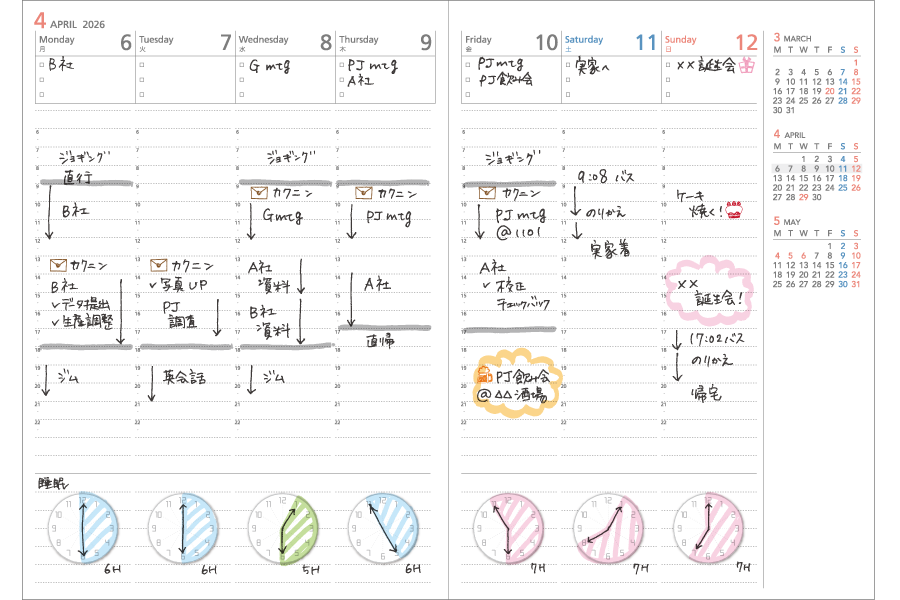 4 APRIL 2026
Monday
月
6
□ B社
□
□
Tuesday
火
7
□
□
□
Wednesday
水
8
□ G mtg
□
□
Thursday
木
9
□ PJ mtg
□ A社
□
Friday
金
10
□ PJ mtg
□ PJ飲み会
□
Saturday
土
11
□ 実家へ
□
□
Sunday
日
12
□ ××誕生会
□
□
6
7
8
9
10
11
12
13
14
15
16
17
18
19
20
21
22
ジョギング
直行
B社
カクニン
B社
✓データ提出
✓生産調整
ジム
カクニン
✓写真UP
PJ
調査
英会話
ジョギング
カクニン
Gmtg
A社
資料
B社
資料
ジム
カクニン
PJ mtg
A社
直帰
ジョギング
カクニン
PJ mtg
@1101
A社
✓校正
チェックバック
PJ飲み会
@△△酒場
9:08 バス
のりかえ
実家着
ケーキ
焼く!
××
誕生会!
17:02バス
のりかえ
帰宅
睡眠
6H
6H
5H
6H
7H
7H
7H
3 MARCH
M T W T F S S
1
2 3 4 5 6 7 8
9 10 11 12 13 14 15
16 17 18 19 20 21 22
23 24 25 26 27 28 29
30 31
4 APRIL
M T W T F S S
1 2 3 4 5
6 7 8 9 10 11 12
13 14 15 16 17 18 19
20 21 22 23 24 25 26
27 28 29 30
5 MAY
M T W T F S S
1 2 3
4 5 6 7 8 9 10
11 12 13 14 15 16 17
18 19 20 21 22 23 24
25 26 27 28 29 30 31